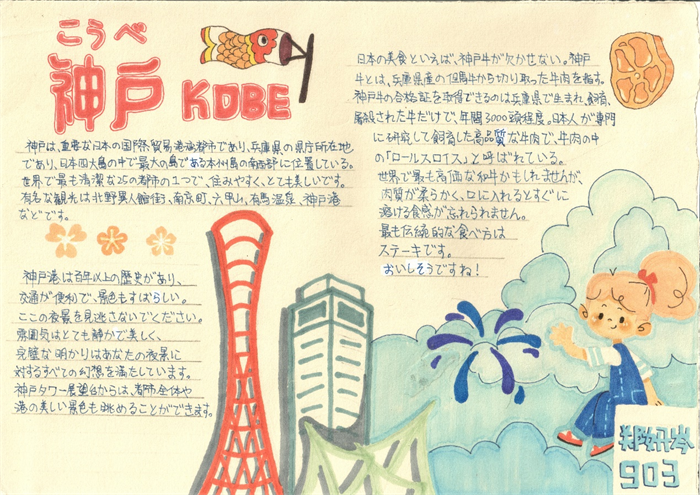 こうべ
神戸 KOBE
神戸は、重要な日本の国際貿易港湾都市であり、兵庫県の県庁所在地
であり、日本四大島の中で最大の島である本州島の南西部に位置している。
世界で最も清潔な25の都市の1つで、住みやすく、とても美しいです。
有名な観光は北野異人館街、南京町、六甲山、有馬温泉、神戸港
などです。
神戸港は百年以上の歴史があり、
交通が便利で、景色もすばらしい。
ここの夜景を見逃さないでください。
雰囲気はとても静かで美しく、
完璧な明かりはあなたの夜景に
対するすべての幻想を満たしています。
神戸タワー展望台からは、都市全体や
港の美しい景色も眺めることができます。
日本の美食といえば、神戸牛が欠かせない。神戸
牛とは、兵庫県産の但馬牛から切り取った牛肉を指す。
神戸牛の合格証を取得できるのは兵庫県で生まれ、飼育、
屠殺された牛だけで、年間3000頭程度。日本人が専門
に研究して飼育した高品質な牛肉で、牛肉の中
の「ロールスロイス」と呼ばれている。
世界で最も高価な和牛かもしれませんが、
肉質が柔らかく、口に入れるとすぐに
溶ける食感が忘れられません。
最も伝統的な食べ方は
ステーキです。
おいしそうですね！
903